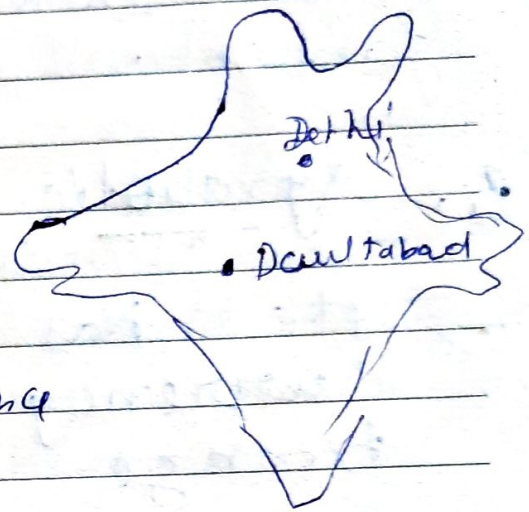 Delhi
Dawltabad